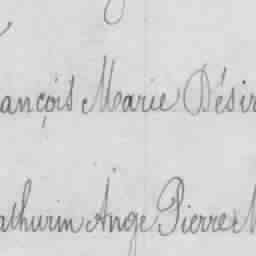 ançois Marie Désir
athurin Ange Pierre M